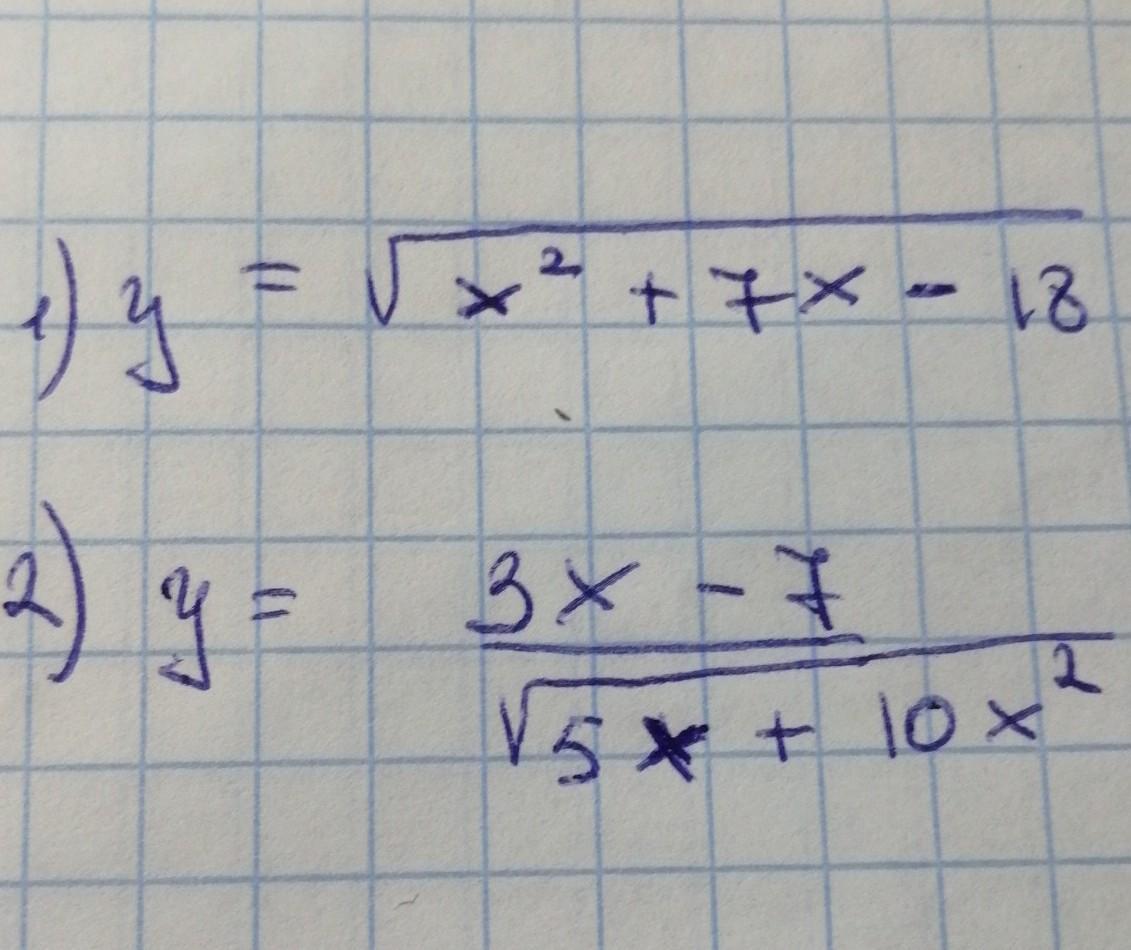 1) y = √(x² + 7x - 18)
2) y = (3x - 7)/√(5x + 10x²)